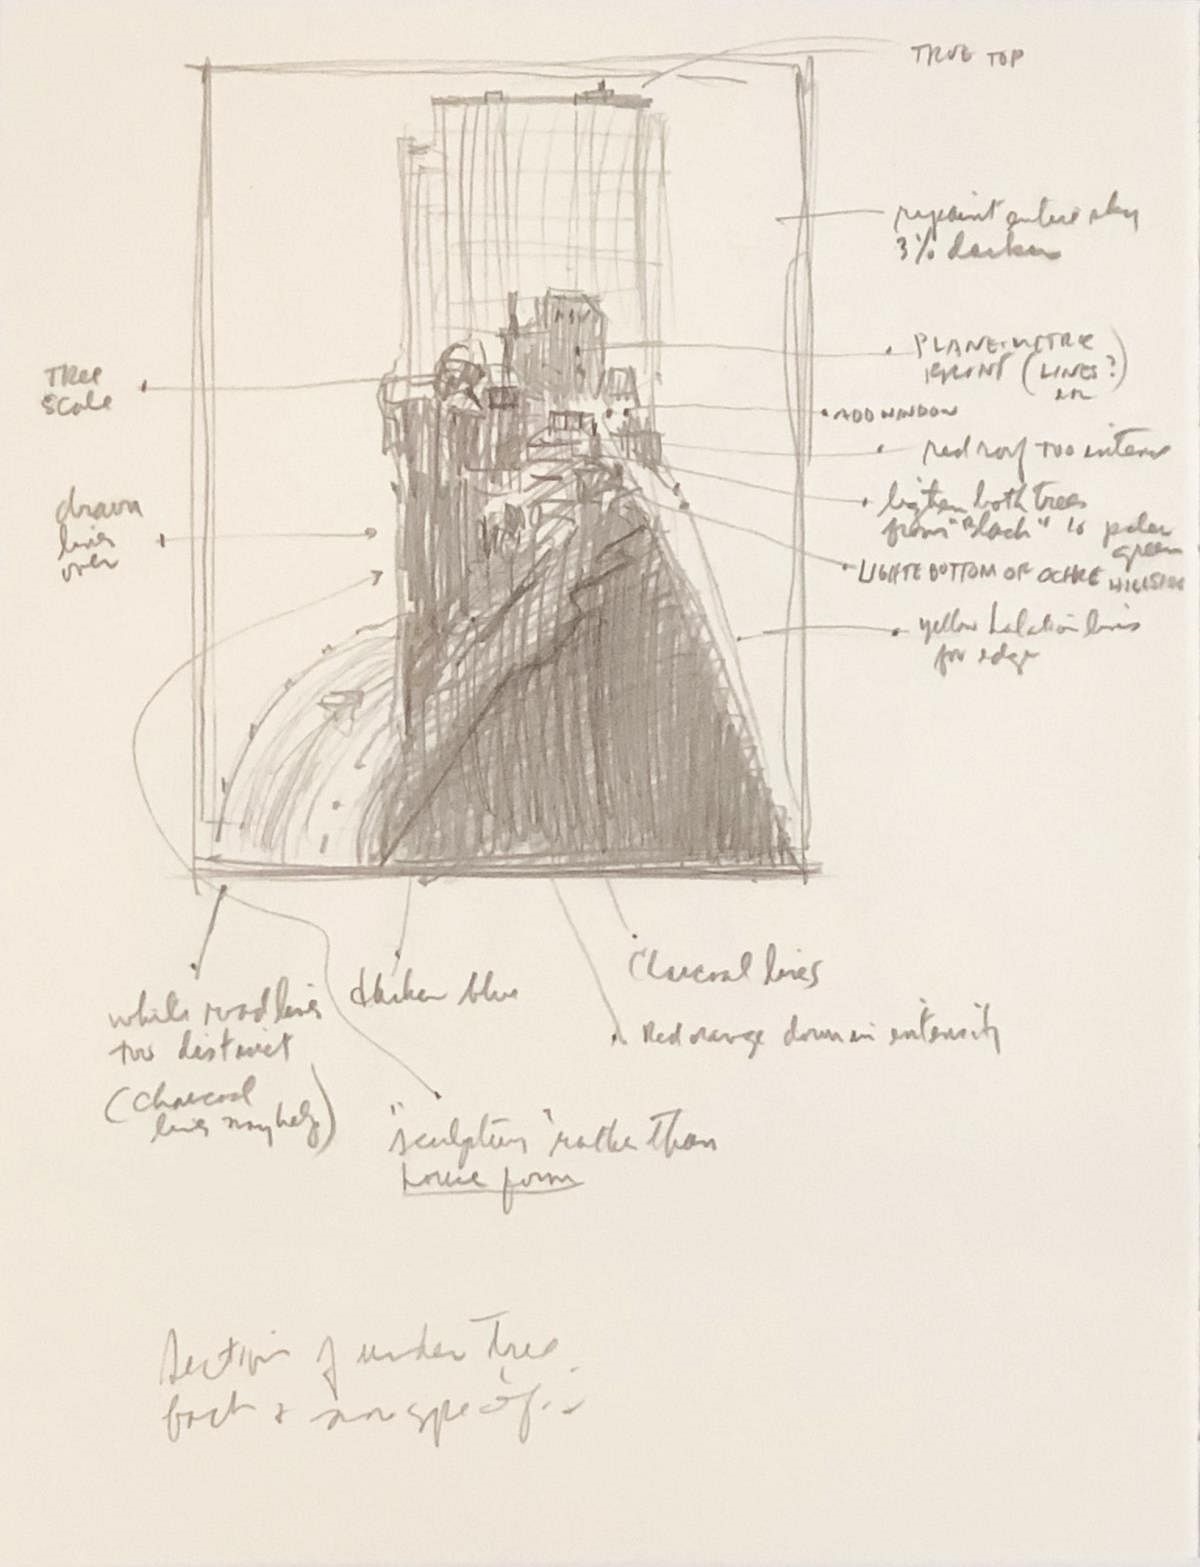 TRUE TOP
repaint entire sky
3% darker
PLANE-METRIC
FRONT (LINES?)
Tree
scale
ADD WINDOW
red roof too intense
drawn
lines
over
lighten both trees
from "Black" to paler
green
LIGHTE BOTTOM OF OCHRE HILLSIDE
yellow halation lines
for edge
Charcoal lines
darken blue
white road lines
too distinct
(Charcoal
lines may help)
Red orange down in intensity
"sculpture" rather than
house form
Section of under Tree